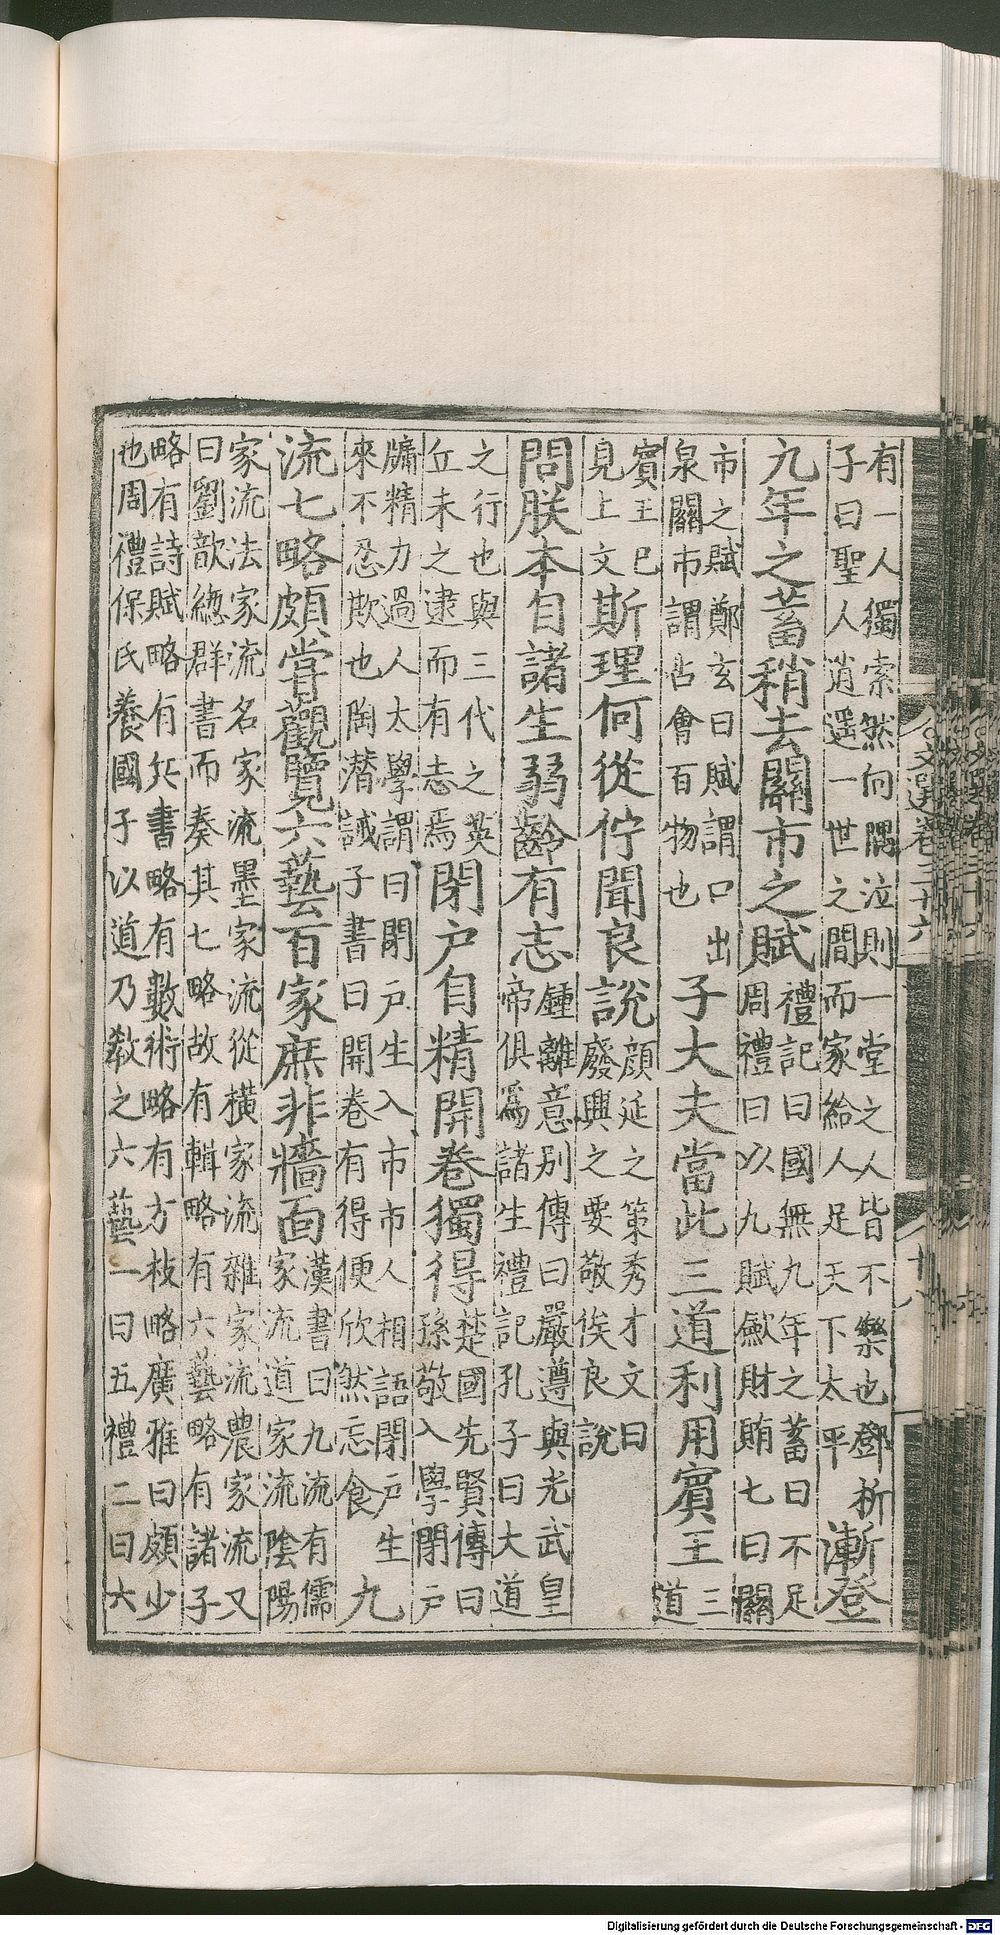 有一人獨索然向隅泣則一堂之人皆不樂也鄧析
子曰聖人逍遥一世之間而家給人足天下太平
漸登
九年之蓄稍去關市之賦
禮記曰國無九年之蓄曰不足
周禮曰以九賦斂財賄七曰關
市之賦鄭玄曰賦謂口出
泉關市謂占會百物也
子大夫當此三道利用賓王
三
道
賓王已
見上文
斯理何從佇聞良說
顔延之策秀才文曰
廢興之要敬俟良說
問朕本自諸生弱齡有志
鍾離意別傳曰嚴遵與光武皇
帝俱爲諸生禮記孔子曰大道
之行也與三代之英
丘未之逮而有志焉
閉户自精開卷獨得
楚國先賢傳曰
孫敬入學閉户
牖精力過人太學謂曰閉户生入市市人相語閉户生
來不忍欺也陶潜誡子書曰開卷有得便欣然忘食
九
流七略頗甞觀覽六藝百家庶非牆面
漢書曰九流有儒
家流道家流陰陽
家流法家流名家流墨家流從橫家流雜家流農家流又
曰劉歆緫群書而奏其七略故有輯略有六藝略有諸子
略有詩賦略有兵書略有數術略有方技略廣雅曰頗少
也周禮保氏養國子以道乃教之六藝一曰五禮二曰六
文選卷三十六
十八
Digitalisierung gefördert durch die Deutsche Forschungsgemeinschaft - DFG